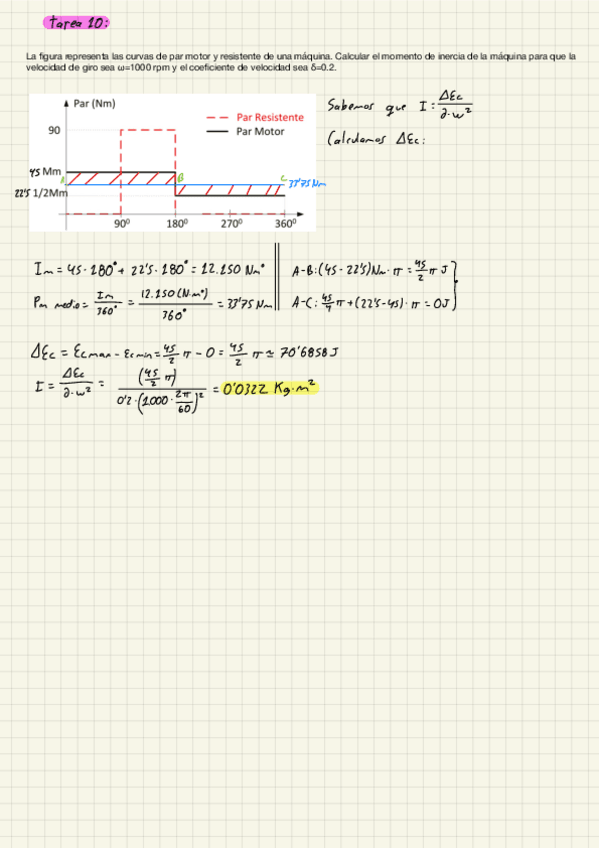 Tarea 10:
La figura representa las curvas de par motor y resistente de una máquina. Calcular el momento de inercia de la máquina para que la
velocidad de giro sea ω=1000 rpm y el coeficiente de velocidad sea δ=0.2.
Par (Nm)
Par Resistente
Par Motor
90
45 Mm
22'5 1/2Mm
A
B
C
33'75 Nm
90º 180º 270º 360º
Sabemos que I = ΔEc / ∂·w²
Calculamos ΔEc:
Im = 45·180° + 22'5·180° = 12.150 Nm°
Par medio = Im / 360° = 12.150 (N·m°) / 360° = 33'75 Nm
A-B: (45 - 22'5)Nm·π = 45/2 π J
A-C: 45/4 π + (22'5-45)·π = 0J
ΔEc = Ecmax - Ecmin = 45/2 π - 0 = 45/2 π ≃ 70'6858 J
I = ΔEc / ∂·w² = (45/2 π) / 0'2·(1.000·2π/60)² = 0'0322 Kg·m²